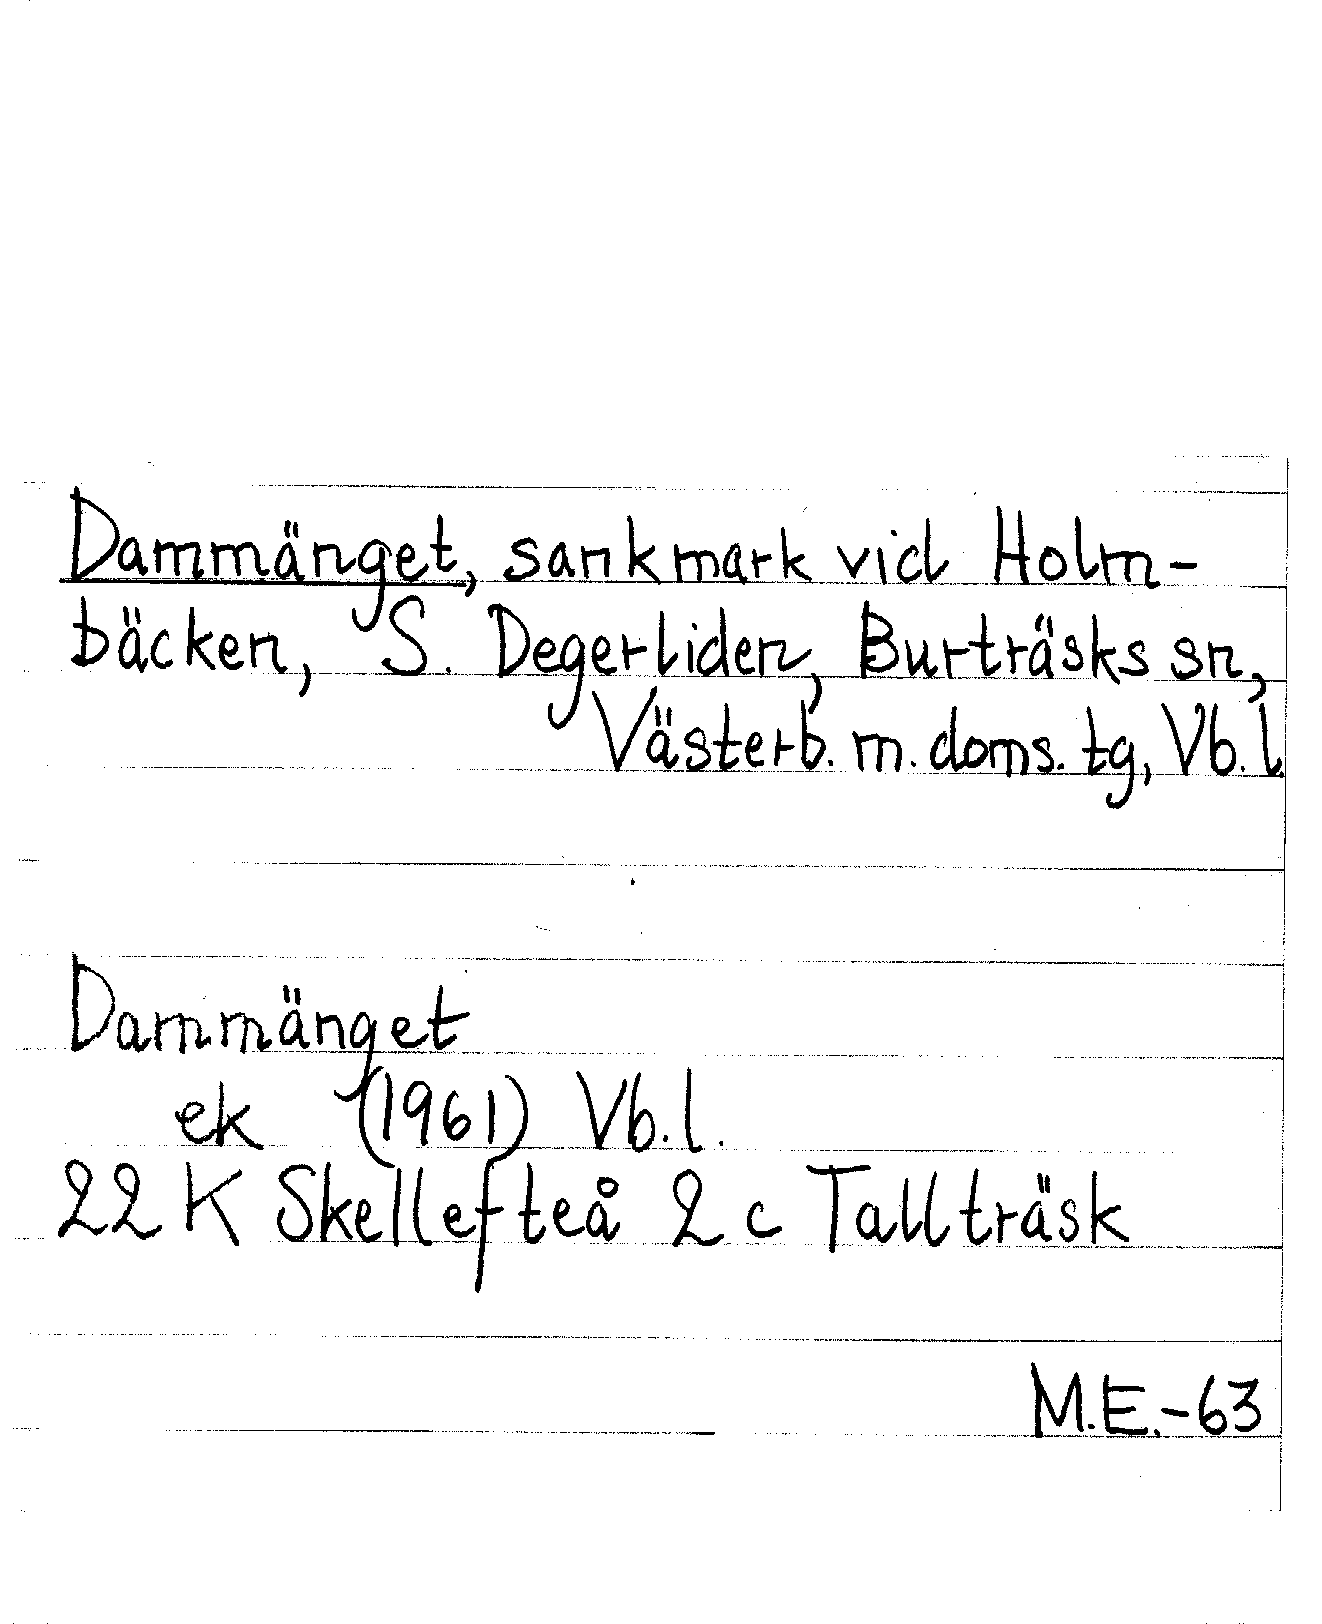 Dammänget, sankmark vid Holm-
bäcken, S. Degerliden, Burträsks sn,
Västerb. m. doms. tg, Vb. l.
Dammänget
ek (1961) Vb. l.
22 K Skellefteå 2 c Tallträsk
M.E.-63